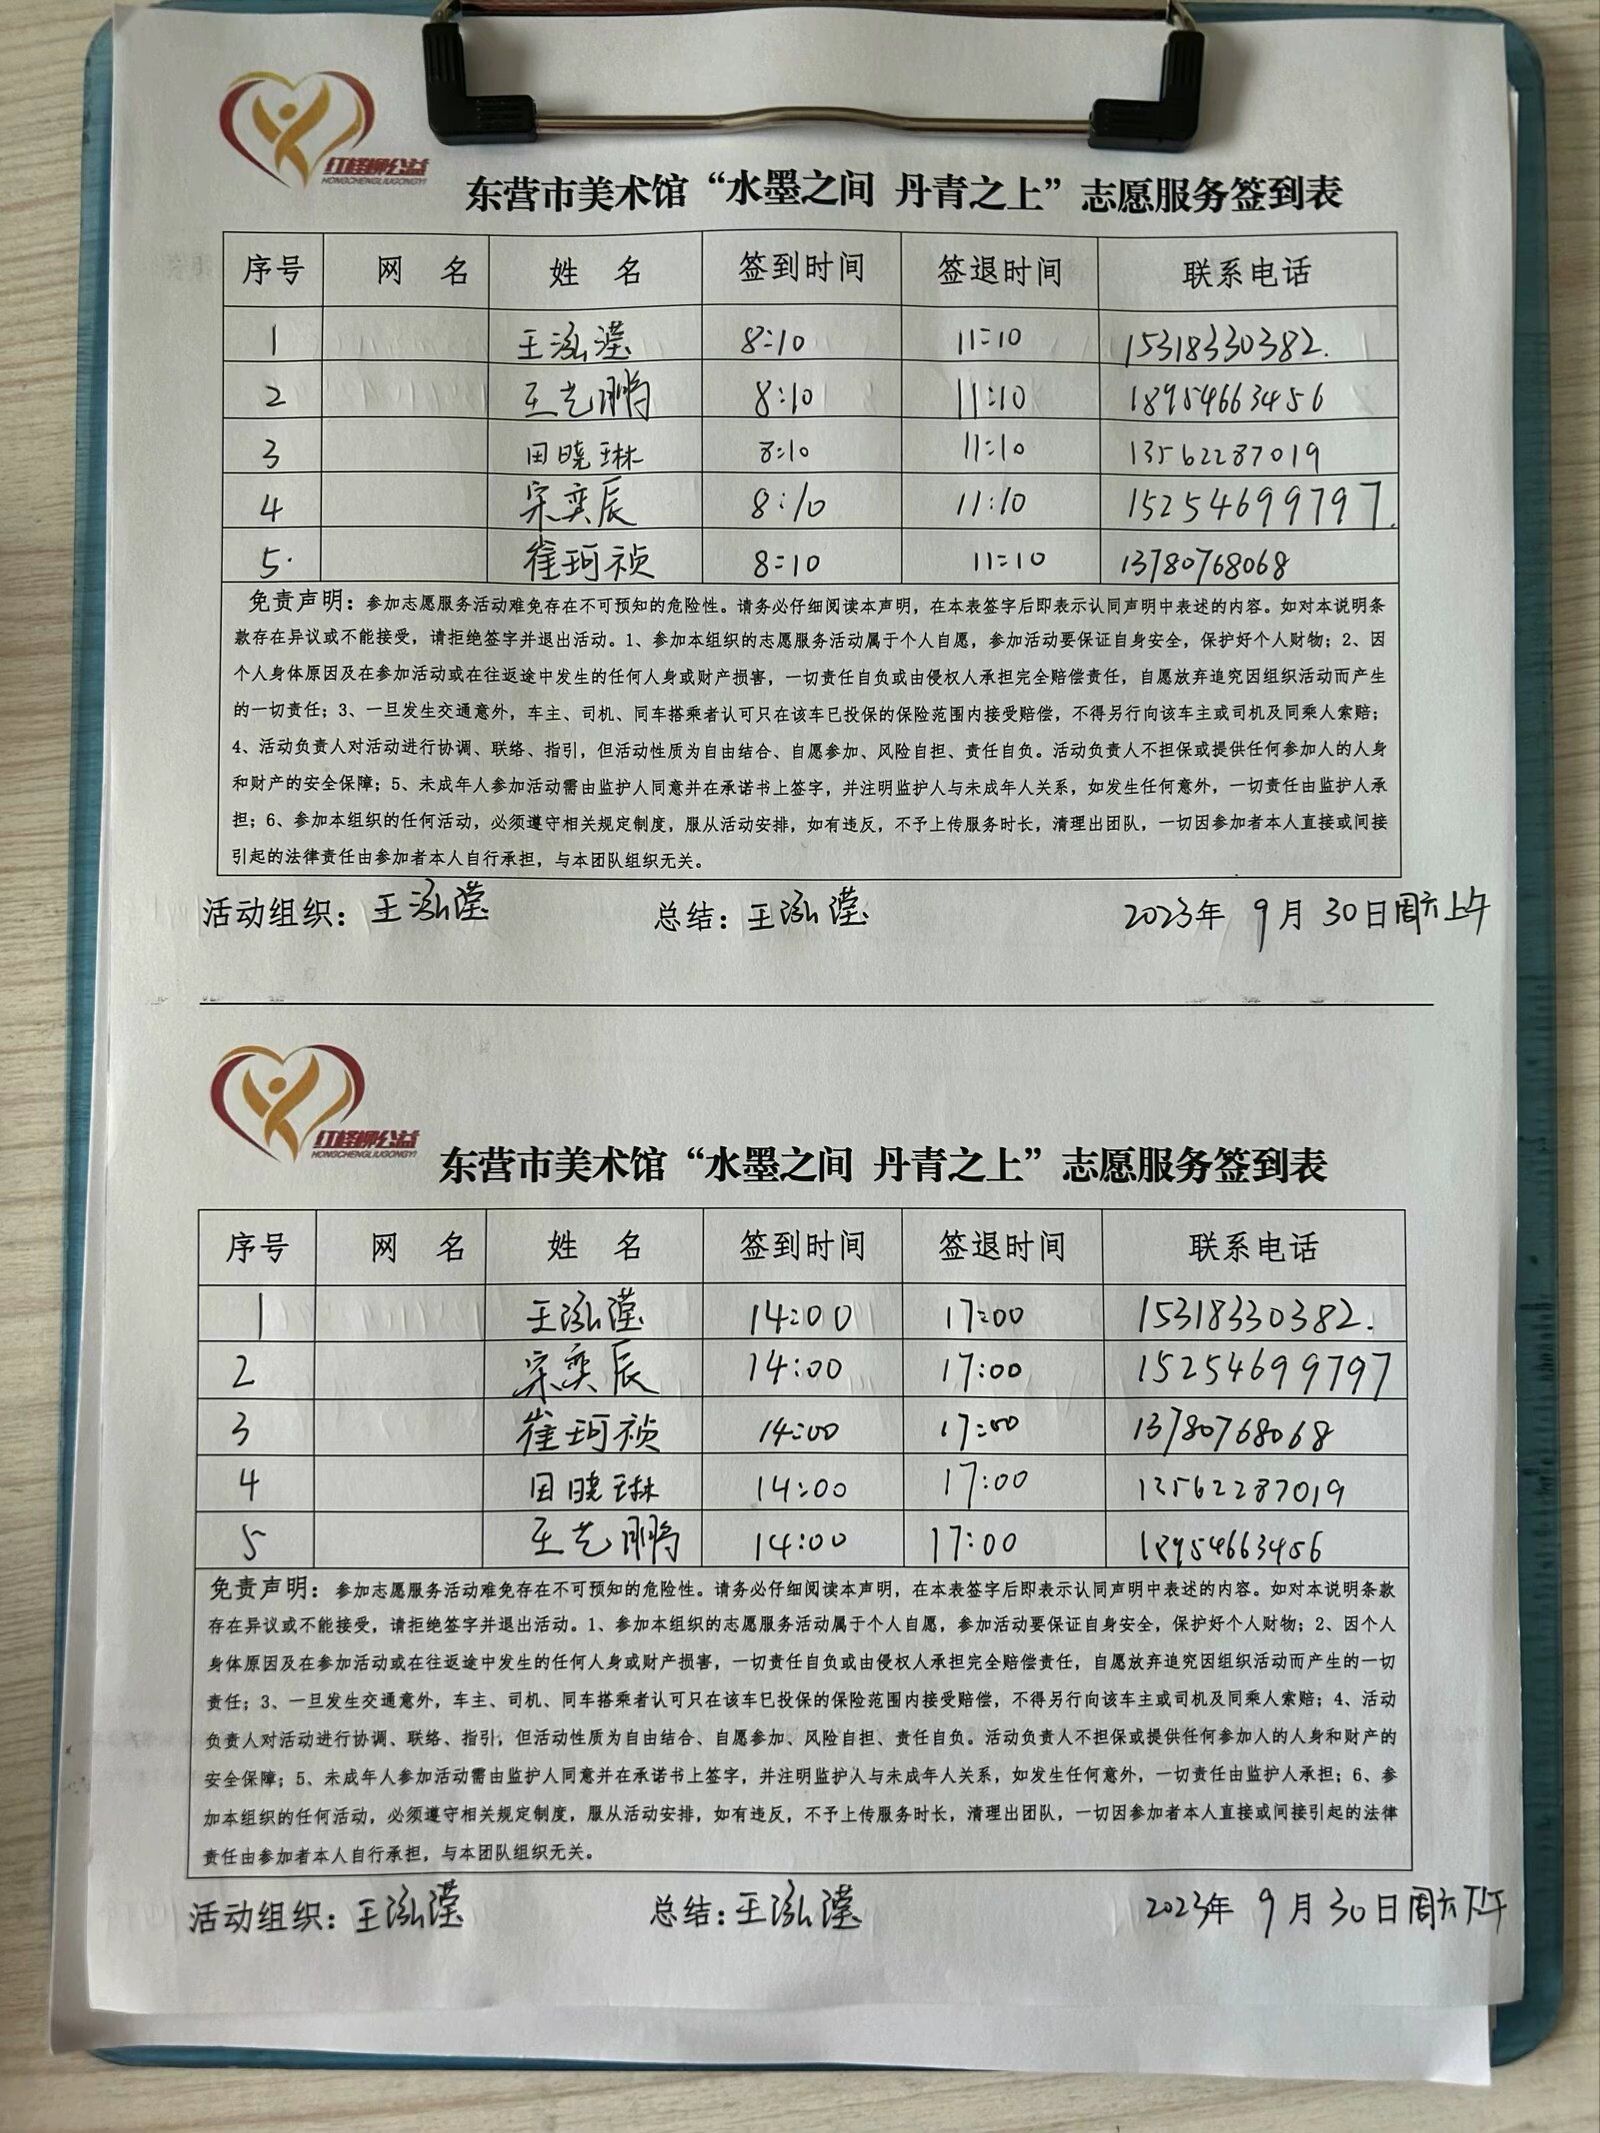 红柽柳公益
HONGCHENGLIUGONGYI
东营市美术馆“水墨之间 丹青之上”志愿服务签到表
序号 网 名 姓 名 签到时间 签退时间 联系电话
1 王泓滢 8:10 11:10 15318330382.
2 王艺鹏 8:10 11:10 18954663456
3 田晓琳 8:10 11:10 13562287019
4 宋奕辰 8:10 11:10 15254699797.
5. 崔珂祯 8:10 11:10 13780768068
免责声明：参加志愿服务活动难免存在不可预知的危险性。请务必仔细阅读本声明，在本表签字后即表示认同声明中表述的内容。如对本说明条
款存在异议或不能接受，请拒绝签字并退出活动。1、参加本组织的志愿服务活动属于个人自愿，参加活动要保证自身安全，保护好个人财物；2、因
个人身体原因及在参加活动或在往返途中发生的任何人身或财产损害，一切责任自负或由侵权人承担完全赔偿责任，自愿放弃追究因组织活动而产生
的一切责任；3、一旦发生交通意外，车主、司机、同车搭乘者认可只在该车已投保的保险范围内接受赔偿，不得另行向该车主或司机及同乘人索赔；
4、活动负责人对活动进行协调、联络、指引，但活动性质为自由结合、自愿参加、风险自担、责任自负。活动负责人不担保或提供任何参加人的人身
和财产的安全保障；5、未成年人参加活动需由监护人同意并在承诺书上签字，并注明监护人与未成年人关系，如发生任何意外，一切责任由监护人承
担；6、参加本组织的任何活动，必须遵守相关规定制度，服从活动安排，如有违反，不予上传服务时长，清理出团队，一切因参加者本人直接或间接
引起的法律责任由参加者本人自行承担，与本团队组织无关。
活动组织：王泓滢 总结：王泓滢 2023年 9月 30日周六上午
红柽柳公益
HONGCHENGLIUGONGYI
东营市美术馆“水墨之间 丹青之上”志愿服务签到表
序号 网 名 姓 名 签到时间 签退时间 联系电话
1 王泓滢 14:00 17:00 15318330382.
2 宋奕辰 14:00 17:00 15254699797
3 崔珂祯 14:00 17:00 13780768068
4 田晓琳 14:00 17:00 13562287019
5 王艺鹏 14:00 17:00 18954663456
免责声明：参加志愿服务活动难免存在不可预知的危险性。请务必仔细阅读本声明，在本表签字后即表示认同声明中表述的内容。如对本说明条款
存在异议或不能接受，请拒绝签字并退出活动。1、参加本组织的志愿服务活动属于个人自愿，参加活动要保证自身安全，保护好个人财物；2、因个人
身体原因及在参加活动或在往返途中发生的任何人身或财产损害，一切责任自负或由侵权人承担完全赔偿责任，自愿放弃追究因组织活动而产生的一切
责任；3、一旦发生交通意外，车主、司机、同车搭乘者认可只在该车已投保的保险范围内接受赔偿，不得另行向该车主或司机及同乘人索赔；4、活动
负责人对活动进行协调、联络、指引，但活动性质为自由结合、自愿参加、风险自担、责任自负。活动负责人不担保或提供任何参加人的人身和财产的
安全保障；5、未成年人参加活动需由监护人同意并在承诺书上签字，并注明监护人与未成年人关系，如发生任何意外，一切责任由监护人承担；6、参
加本组织的任何活动，必须遵守相关规定制度，服从活动安排，如有违反，不予上传服务时长，清理出团队，一切因参加者本人直接或间接引起的法律
责任由参加者本人自行承担，与本团队组织无关。
活动组织：王泓滢 总结：王泓滢 2023年 9月 30日周六下午